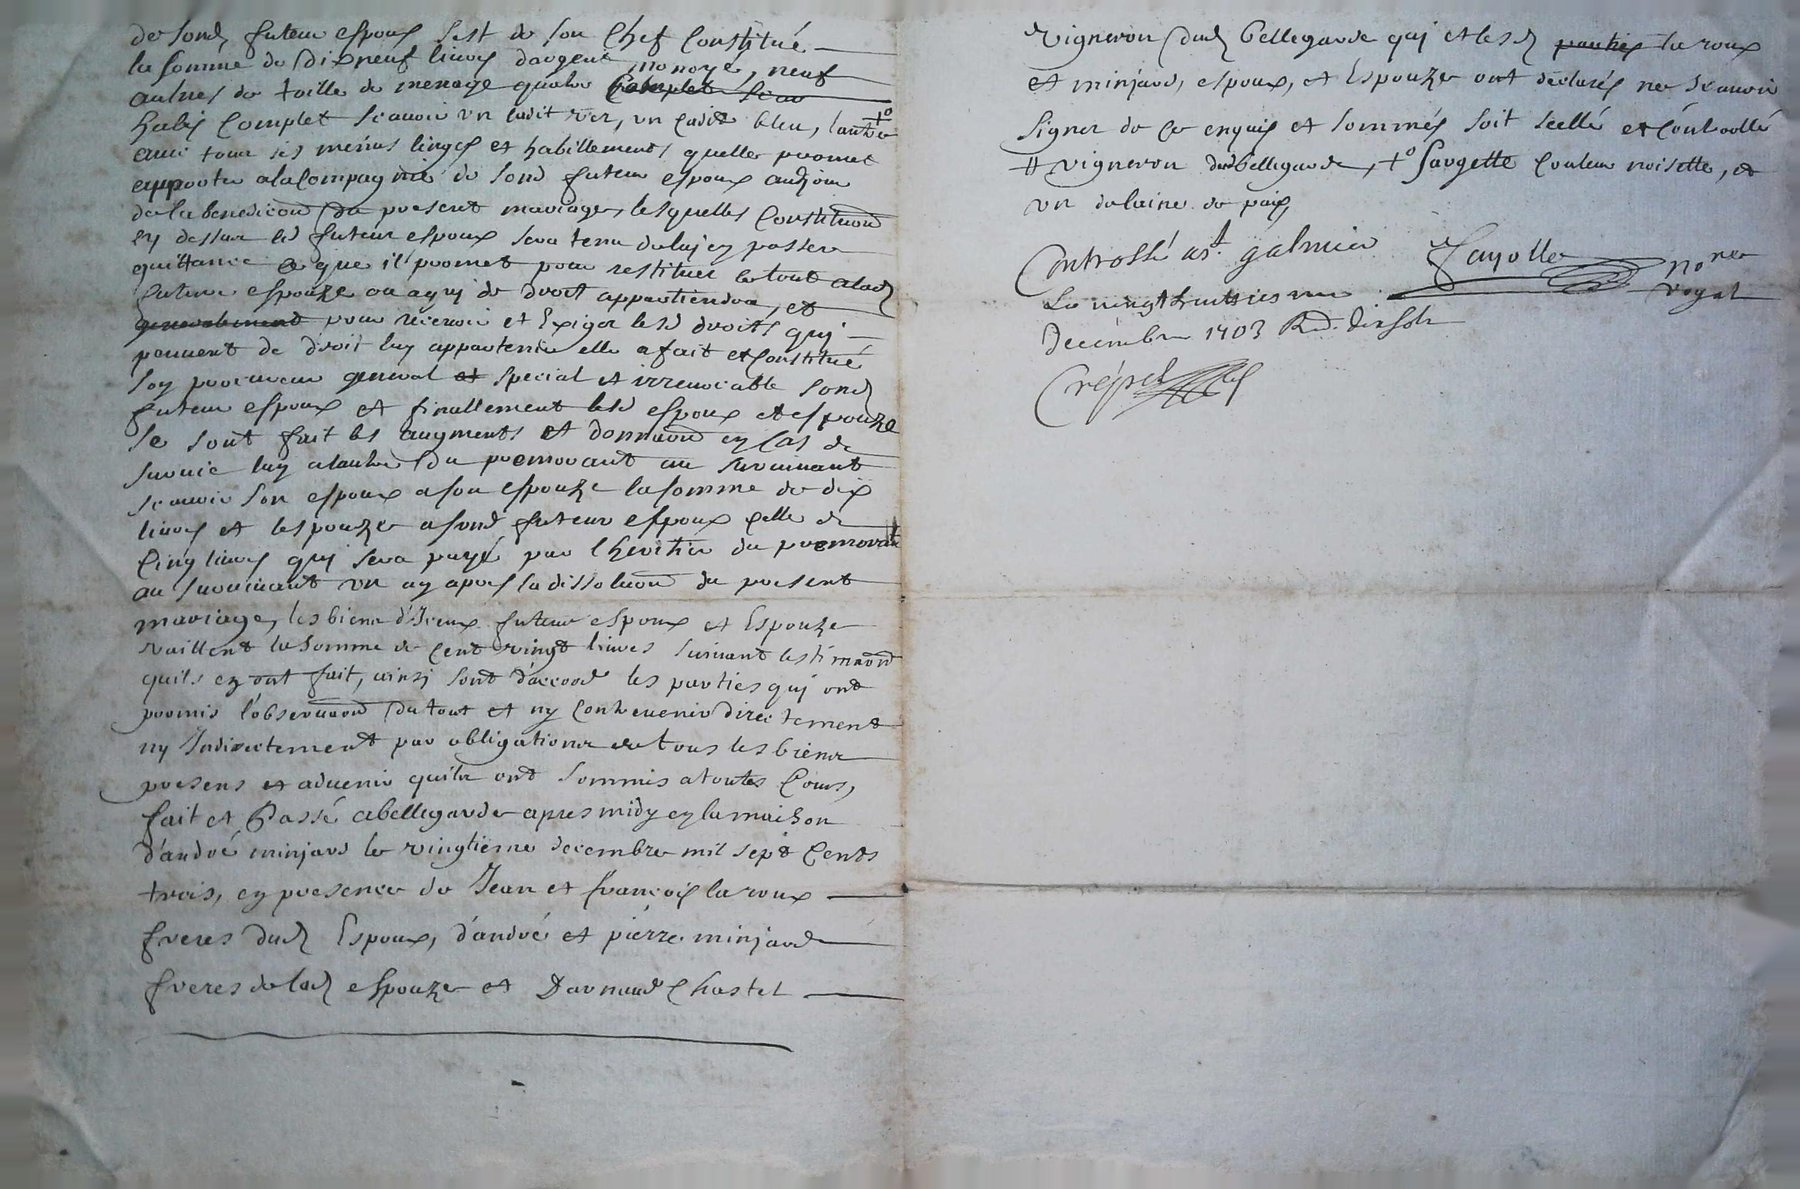 de sond futeur espoux sest de son Chef Constitué
la somme de dixneuf livres dargent monoyé, neuf
aulnes de toille de menage quatre Complet scav
habis Complet scavoir un cadit vert, un cadit bleu, lautre +o
avec tour ses menus linges et habillements quelle promet
apporter a la Compagnie de sond futeur espoux au jour
de la benediction du present mariage, lesquelles Constitution
cy dessus led futeur espoux sera tenu de luy en passer
quittance ce que il promet pour restituer le tout a lad
future espouze ou a qui de droit appartiendra, et
generalement pour recevoir et Exiger lesd droits qui
peuvent de droit luy appartenir elle a fait et Constitué
son procureur general et special et irrevocable sond
futeur espoux et finallement lesd espoux et espouze
se sont fait les augments et donnaon en Cas de
survie luy a lautre du premourant au survivant
scavoir son espoux a son espouze la somme de dix
livres et lespouze a sond futeur espoux Celle de
Cinq livres qui sera payé par lheritier du premourat
au survivant un an apres la dissoluon du present
mariage, les biens d'Iceux futeur espoux et Espouze
vaillent la somme de Cent vingt livres suivant lestimaon
quils en ont fait, ainsi sont d'accord les parties qui ont
promis l'observaon du tout et ny Contrevenir directement
ny Indirectement par obligations de tous les biens
presens et advenir quils ont sommis a toutes Cours,
fait et Passé a bellegarde apres midy en la maison
d'andré minjard le vingtieme decembre mil sept Cents
trois, en presence de Jean et françois laroux
freres dud Espoux, d'andré et pierre minjard
freres de lad espouze et Darnaud Chastel
vigneron dud bellegarde qui et lesd parties laroux
et minjard, espoux, et Espouze ont declarés ne scavoir
signer de Ce enquis et sommés soit scellé et Controollé
# vigneron dud bellegarde, +o sargette Couleur noisette, et
un de laine de païs,
Controllé a st. galmier
Le vingt huitiesme
decembre 1703 Rd. dix sols
Crépet
Fayolle
no.re
royal